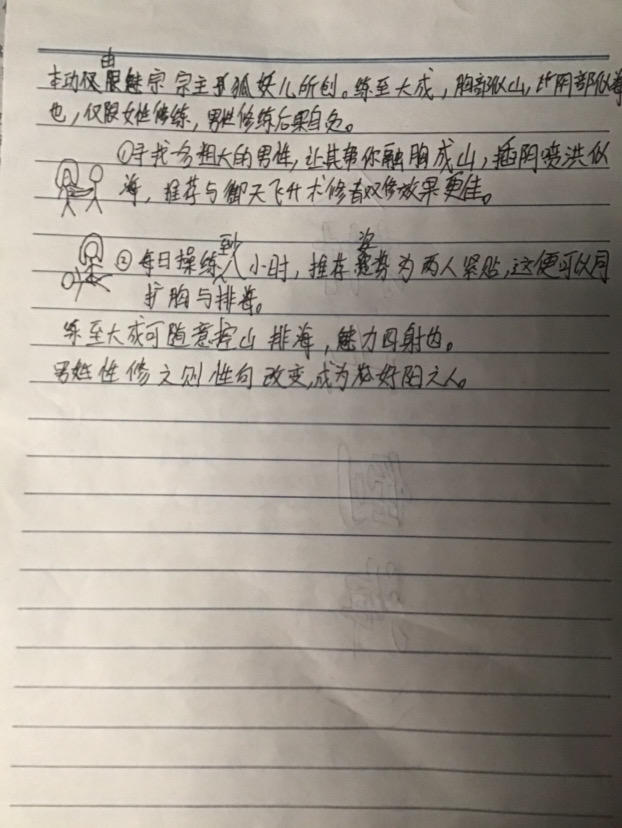 本功仅由魅宗宗主狐妖儿所创。练至大成，胸部似山，阴部似海
也，仅限女性修练，男性修练后果自负。
①寻找一名粗大的男性，让其帮你融胸成山，插阴喷洪似
海，推荐与御天飞升术修者双修效果更佳。
②每日操练到八小时，推荐姿势为两人紧贴，这便可以同
扩胸与排海。
练至大成可随意控山排海，魅力四射也。
男姓性修之则性向改变，成为好阳之人。